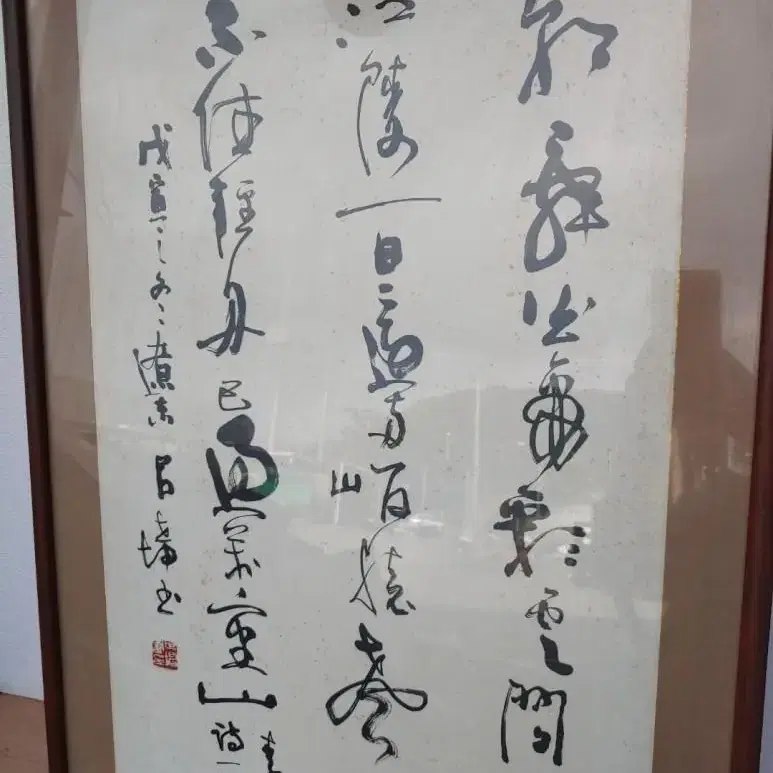 朝辭白帝彩雲間
江陵一日還兩岸猿聲
不住輕舟已過萬重山 詩一
戊寅之冬 遼東 呂 書